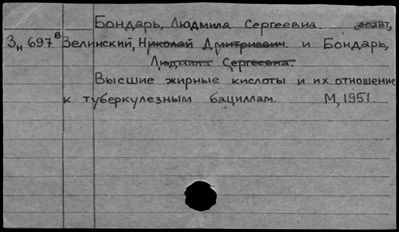 Бондарь, Людмила Сергеевна соавт,
Зн 697в Зелинский, Николай Дмитриевич. и Бондарь,
Людмила Сергеевна.
Высшие жирные кислоты и их отношение
к туберкулезным бациллам. М, 1951